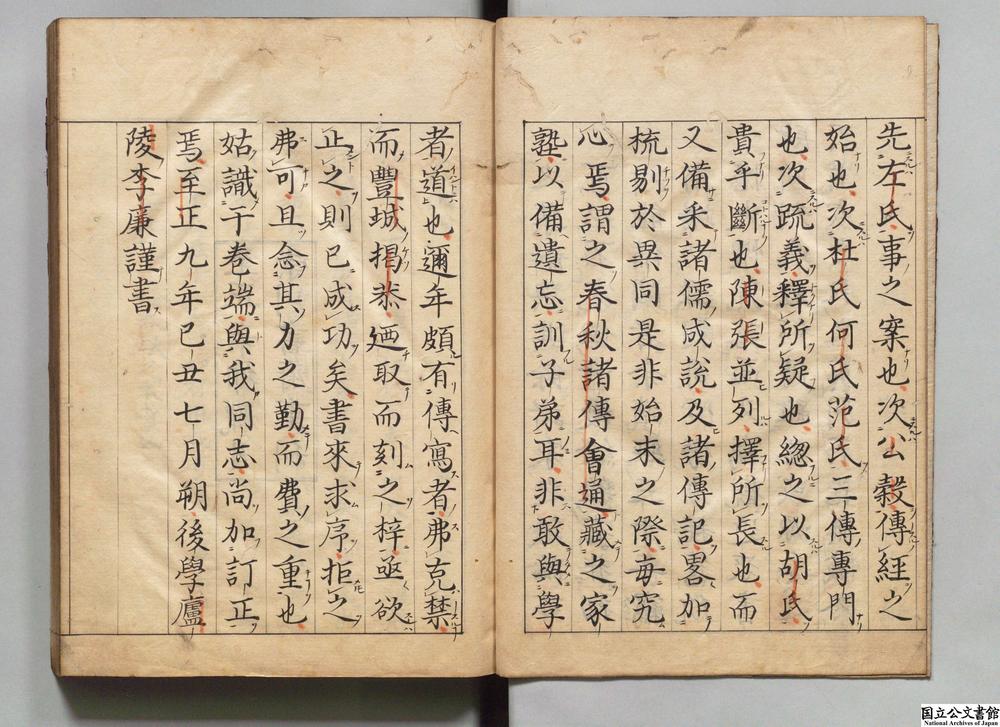 先左氏事之案也次公穀傳經之
始也次杜氏何氏范氏三傳專門
也次疏義釋所疑也緫之以胡氏
貴乎斷也陳張並列擇所長也而
又備采諸儒成說及諸傳記畧加
梳剔於異同是非始末之際每究
心焉謂之春秋諸傳會通藏之家
塾以備遺忘訓子弟耳非敢與學
者道也邇年頗有傳寫者弗克禁
而豐城揭恭廼取而刻之梓亟欲
止之則已成功矣書來求序拒之
弗可且念其力之勤而費之重也
姑識于卷端與我同志尚加訂正
焉至正九年己丑七月朔後學廬
陵李廉謹書
国立公文書館
National Archives of Japan